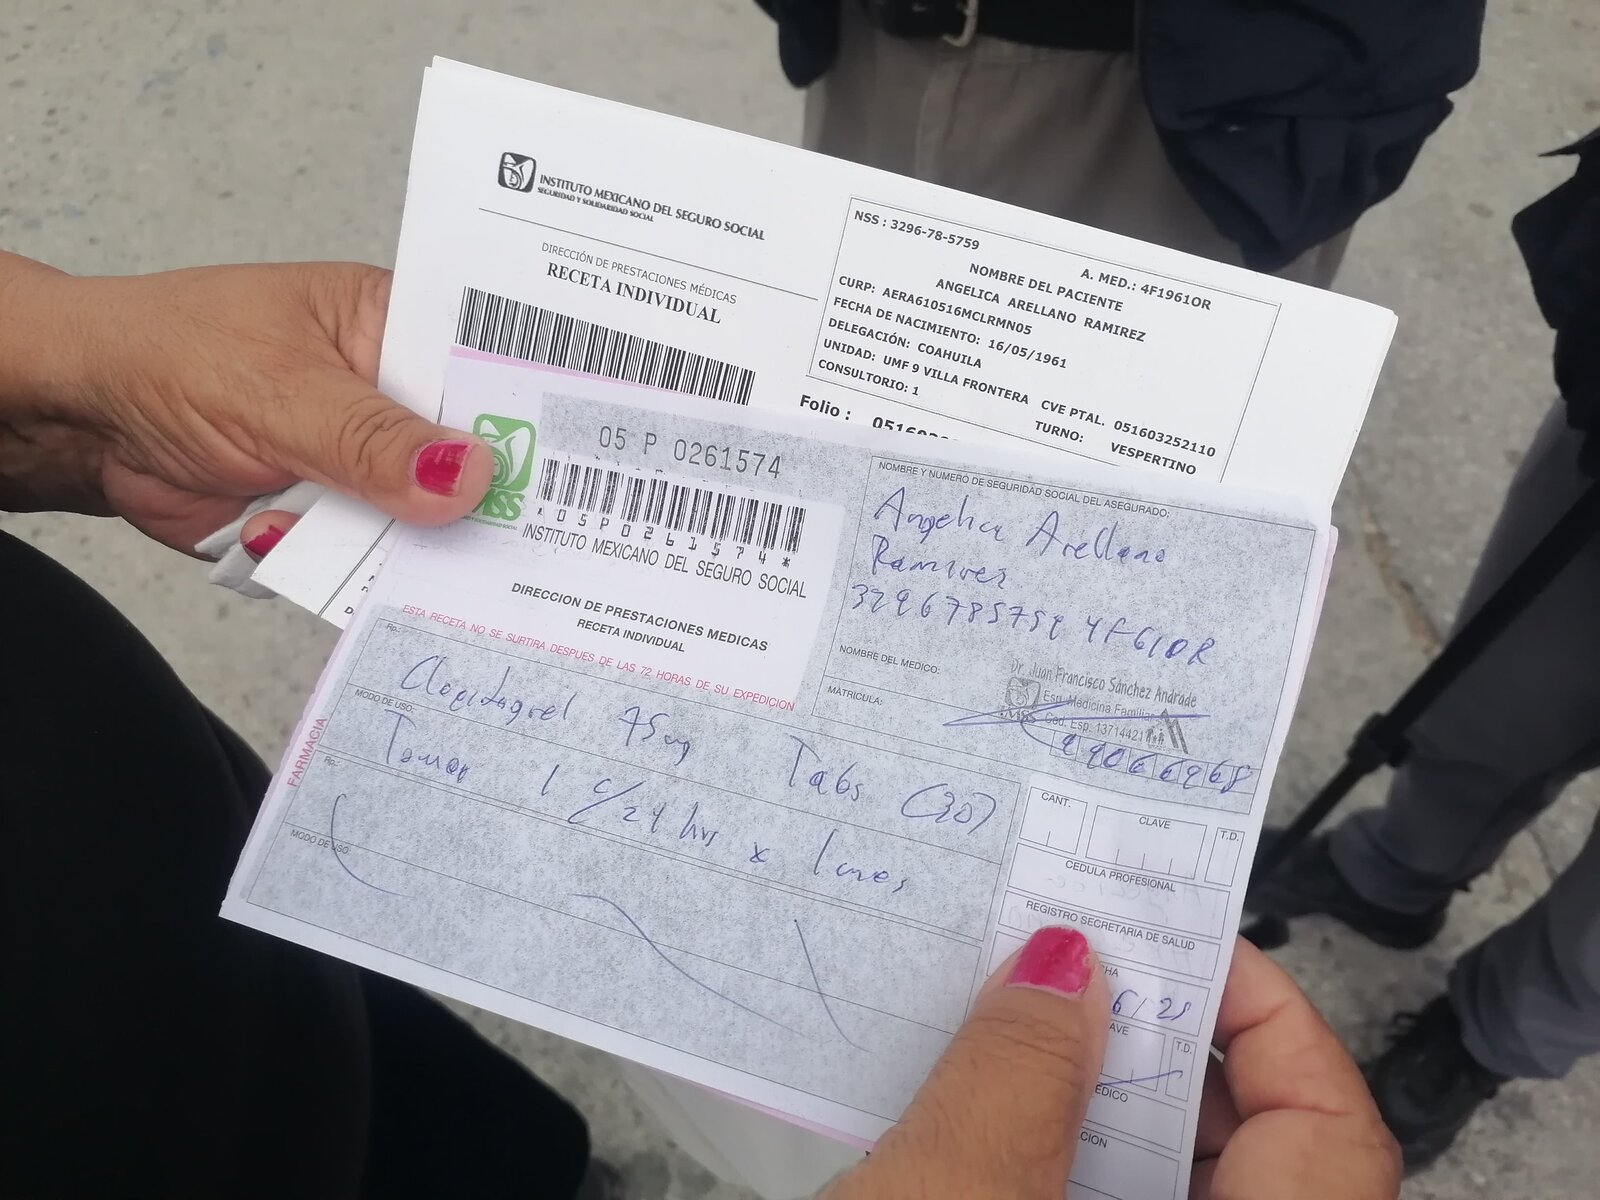 INSTITUTO MEXICANO DEL SEGURO SOCIAL
SEGURIDAD Y SOLIDARIDAD SOCIAL
DIRECCIÓN DE PRESTACIONES MÉDICAS
RECETA INDIVIDUAL
NSS : 3296-78-5759
A. MED.: 4F1961OR
NOMBRE DEL PACIENTE
ANGELICA ARELLANO RAMIREZ
CURP: AERA610516MCLRMN05
FECHA DE NACIMIENTO: 16/05/1961
DELEGACIÓN: COAHUILA
UNIDAD: UMF 9 VILLA FRONTERA CVE PTAL. 051603252110
CONSULTORIO: 1
TURNO: VESPERTINO
Folio :
05 P 0261574
*05P0261574*
IMSS
INSTITUTO MEXICANO DEL SEGURO SOCIAL
DIRECCION DE PRESTACIONES MEDICAS
RECETA INDIVIDUAL
ESTA RECETA NO SE SURTIRA DESPUES DE LAS 72 HORAS DE SU EXPEDICION
NOMBRE Y NUMERO DE SEGURIDAD SOCIAL DEL ASEGURADO:
Angelica Arellano
Ramirez
3296785759 4F61OR
NOMBRE DEL MEDICO:
Dr. Juan Francisco Sánchez Andrade
Esp. Medicina Familiar
IMSS Ced. Esp. 13714421
MATRICULA:
99066968
FARMACIA
Rp.:
Clopidogrel 75mg Tabs (30)
MODO DE USO:
Tomar 1 c/24 hrs x 1 mes
Rp.:
MODO DE USO:
CANT.
CLAVE
T.D.
CEDULA PROFESIONAL
REGISTRO SECRETARIA DE SALUD
T.D.